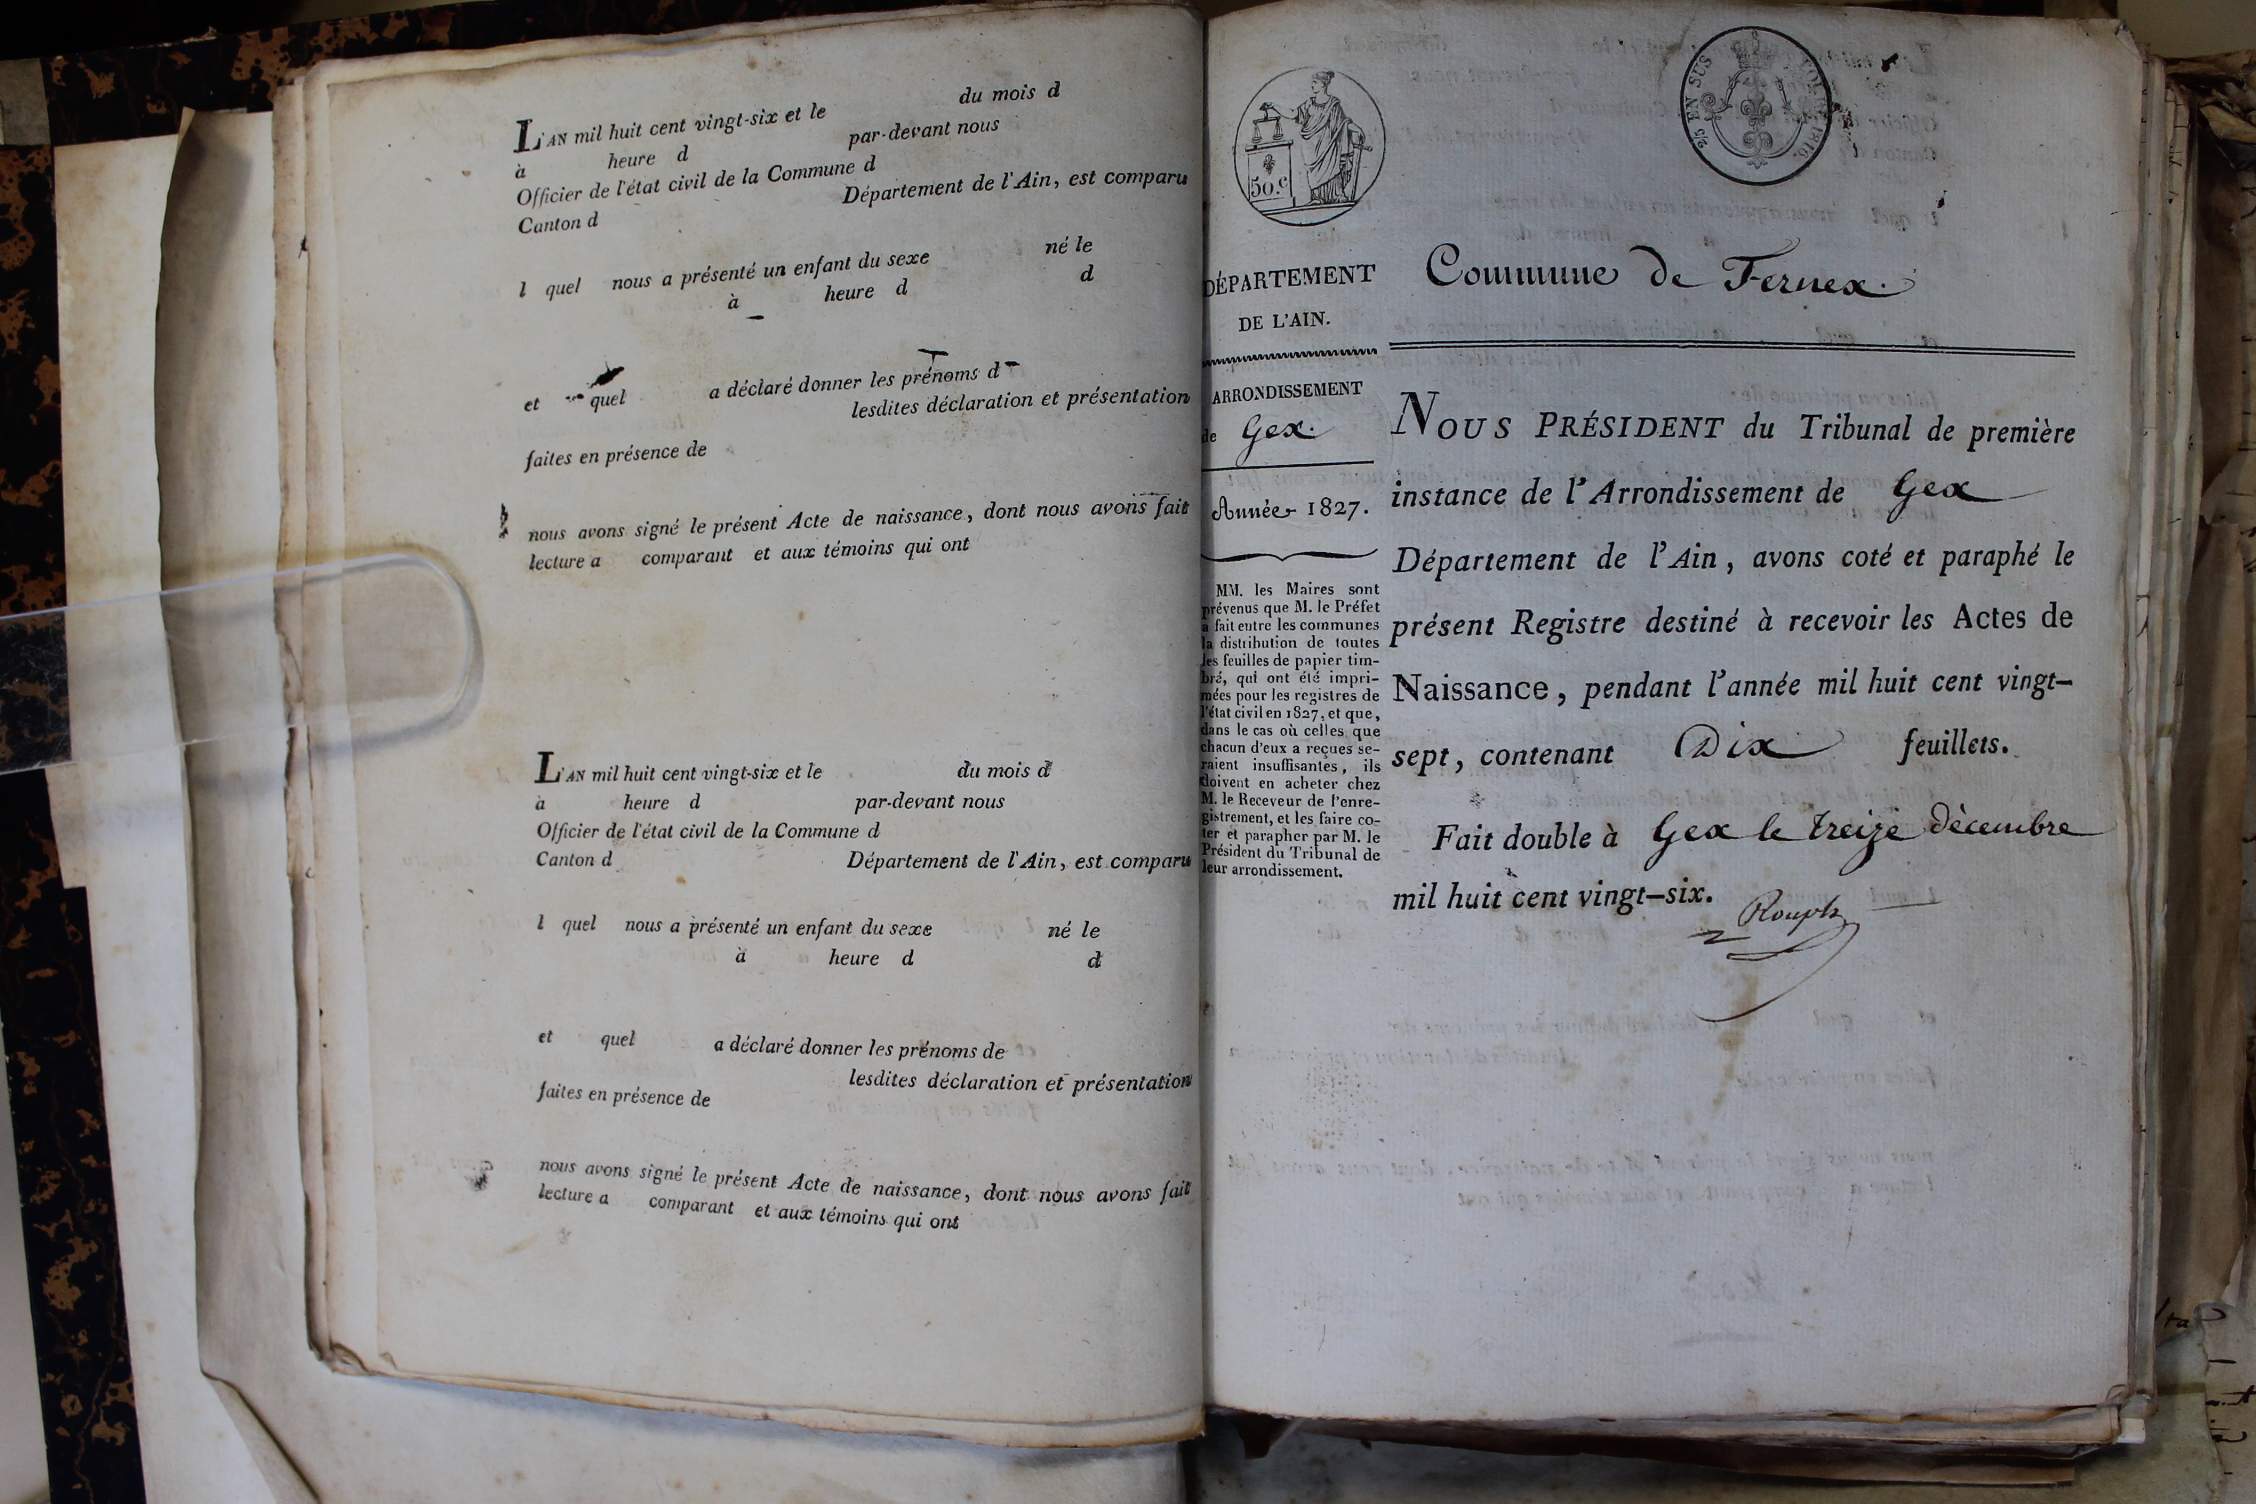 L'AN mil huit cent vingt-six et le du mois d
à heure d par-devant nous
Officier de l'état civil de la Commune d
Canton d Département de l'Ain, est comparu
l quel nous a présenté un enfant du sexe né le
à heure d d
et quel a déclaré donner les prénoms d
lesdites déclaration et présentation
faites en présence de
nous avons signé le présent Acte de naissance, dont nous avons fait
lecture a comparant et aux témoins qui ont
L'AN mil huit cent vingt-six et le du mois d
à heure d par-devant nous
Officier de l'état civil de la Commune d
Canton d Département de l'Ain, est comparu
l quel nous a présenté un enfant du sexe né le
à heure d d
et quel a déclaré donner les prénoms de
lesdites déclaration et présentation
faites en présence de
nous avons signé le présent Acte de naissance, dont nous avons fait
lecture a comparant et aux témoins qui ont
50.c
2/5 EN SUS 1816.
DÉPARTEMENT
DE L'AIN.
ARRONDISSEMENT
de Gex.
Année 1827.
MM. les Maires sont
prévenus que M. le Préfet
a fait entre les communes
la distribution de toutes
les feuilles de papier tim-
bré, qui ont été impri-
mées pour les registres de
l'état civil en 1827, et que,
dans le cas où celles que
chacun d'eux a reçues se-
raient insuffisantes, ils
doivent en acheter chez
M. le Receveur de l'enre-
gistrement, et les faire co-
ter et parapher par M. le
Président du Tribunal de
leur arrondissement.
Commune de Fernex.
NOUS PRÉSIDENT du Tribunal de première
instance de l'Arrondissement de Gex
Département de l'Ain, avons coté et paraphé le
présent Registre destiné à recevoir les Actes de
Naissance, pendant l'année mil huit cent vingt-
sept, contenant Dix feuillets.
Fait double à Gex le treize décembre
mil huit cent vingt-six.